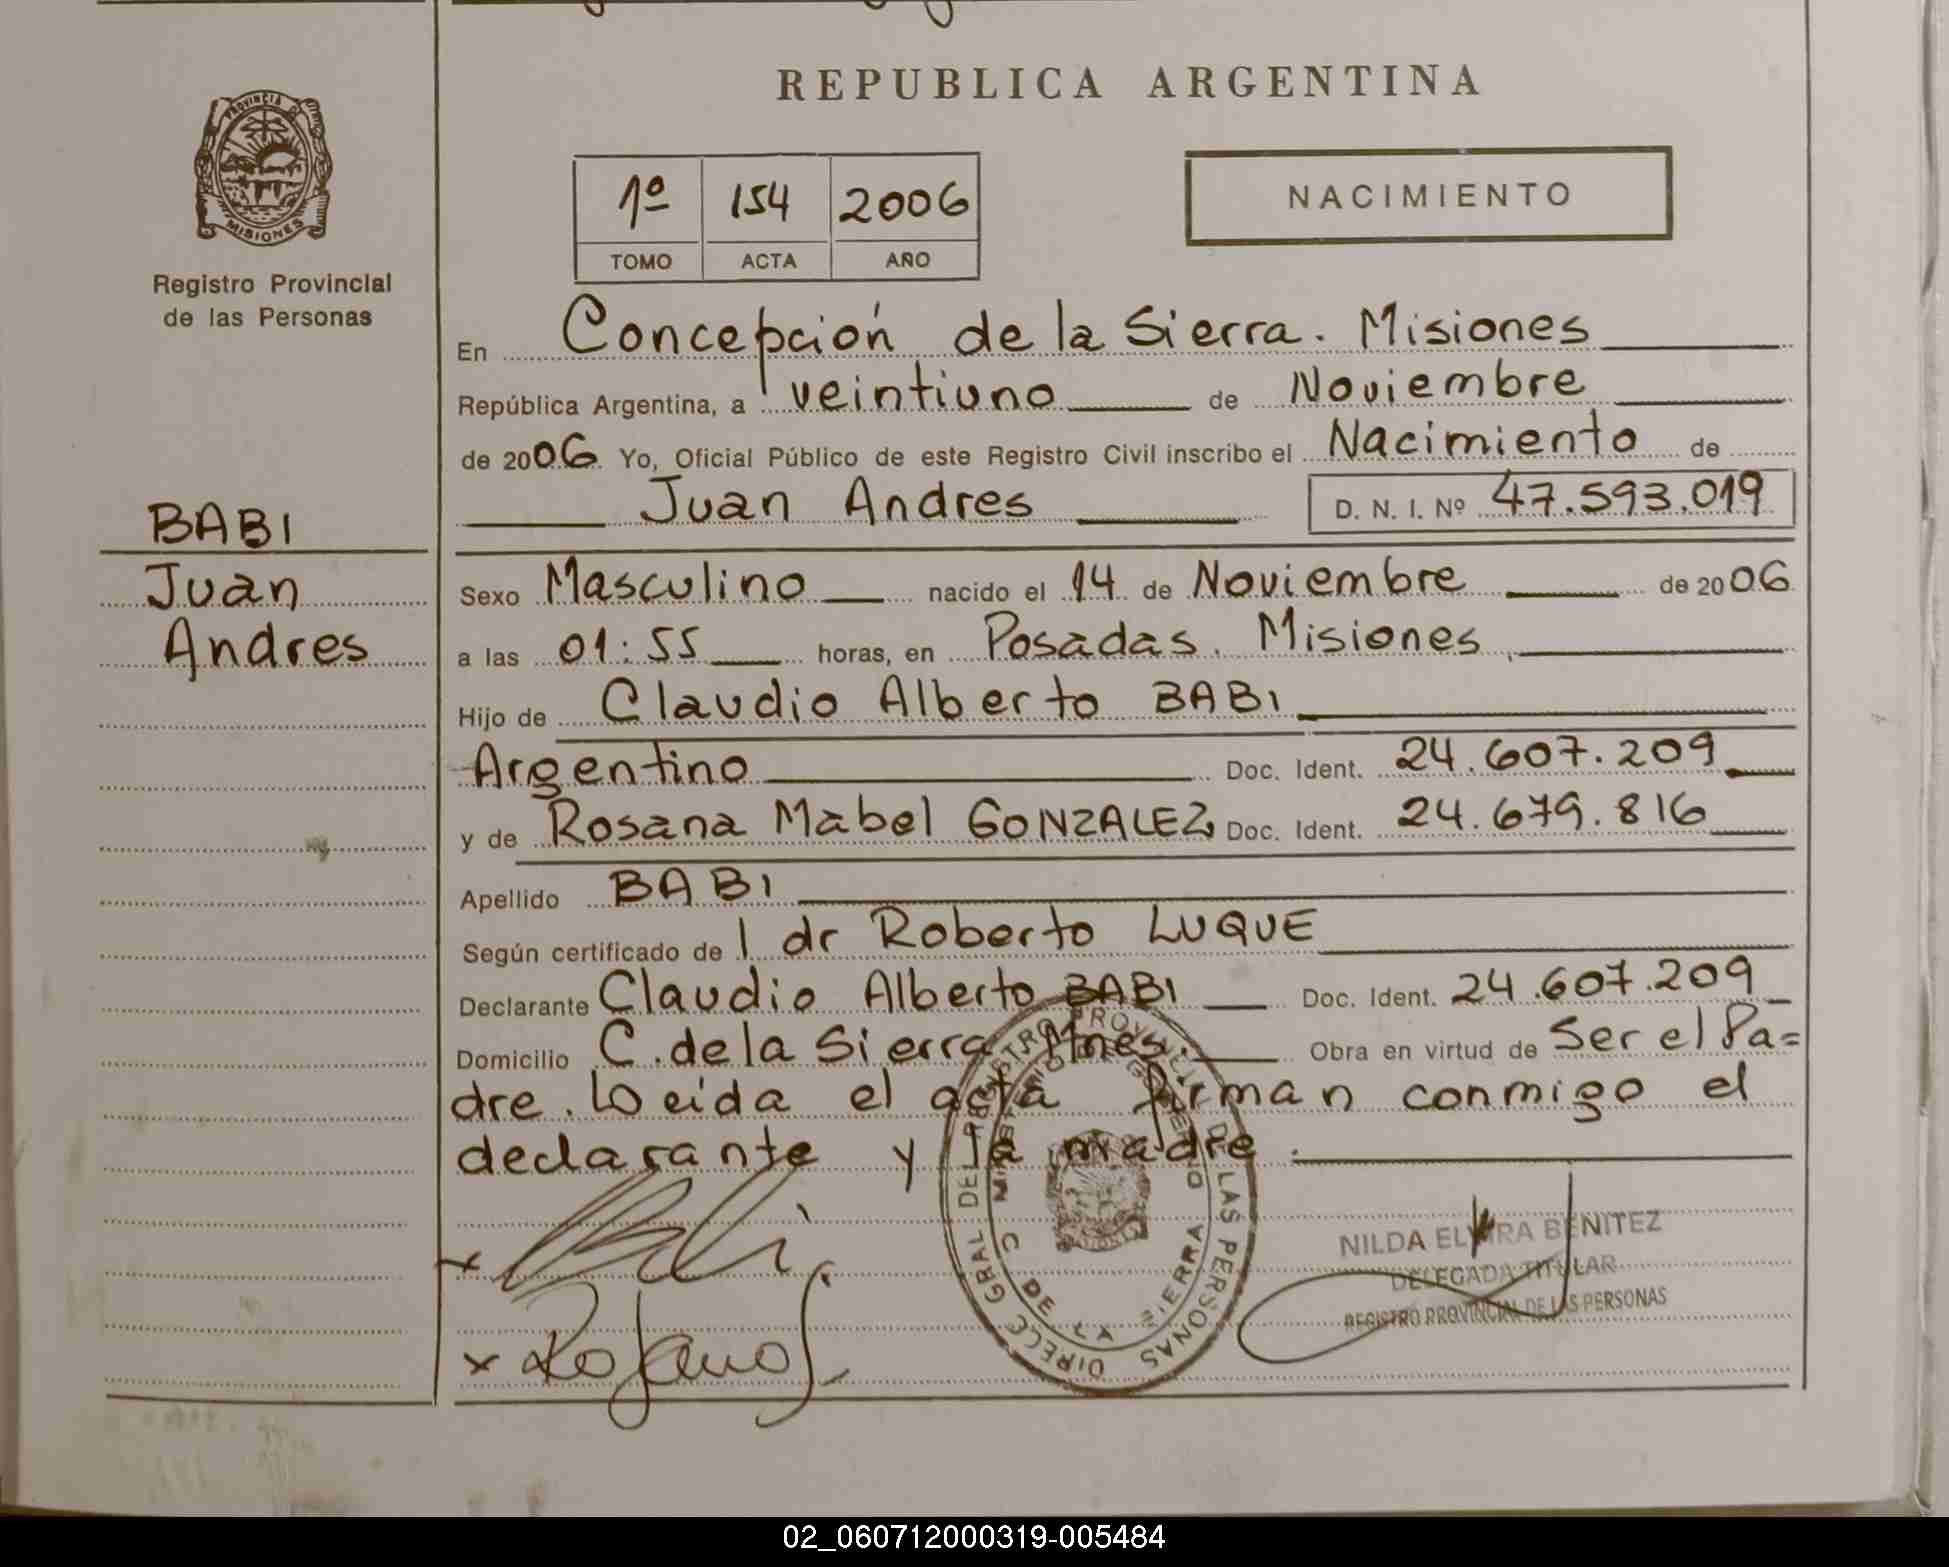 PROVINCIA DE
MISIONES
Registro Provincial
de las Personas
BABI
Juan
Andres
REPUBLICA ARGENTINA
1º 154 2006
TOMO ACTA AÑO
NACIMIENTO
En Concepción de la Sierra. Misiones
República Argentina, a veintiuno de Noviembre
de 2006 Yo, Oficial Público de este Registro Civil inscribo el Nacimiento de
Juan Andres D. N. I. Nº 47.593.019
Sexo Masculino nacido el 14 de Noviembre de 2006
a las 01:55 horas, en Posadas. Misiones
Hijo de Claudio Alberto BABI
Argentino Doc. Ident. 24.607.209
y de Rosana Mabel GONZALEZ Doc. Ident. 24.679.816
Apellido BABI
Según certificado de l dr Roberto LUQUE
Declarante Claudio Alberto BABI Doc. Ident. 24.607.209
Domicilio C. de la Sierra Mnes. Obra en virtud de Ser el Pa=
dre. Leida el acta firman conmigo el
declarante y la madre.
DIRECC GRAL DEL REGISTRO PROVINCIAL DE LAS PERSONAS
C DE LA SIERRA
NILDA ELVIRA BENITEZ
DELEGADA TITULAR
REGISTRO PROVINCIAL DE LAS PERSONAS
02_060712000319-005484